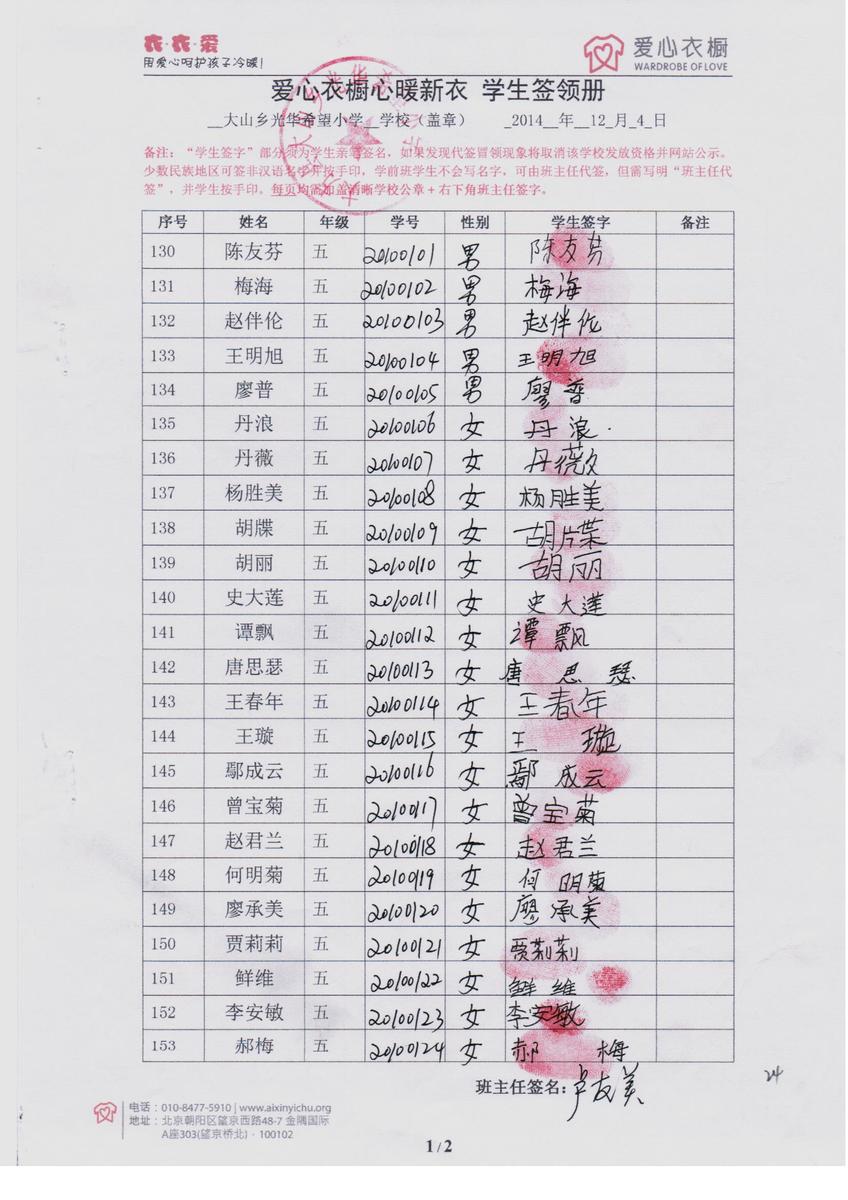 衣·衣·爱
用爱心呵护孩子冷暖!
爱心衣橱
WARDROBE OF LOVE
爱心衣橱心暖新衣 学生签领册
__大山乡光华希望小学__学校（盖章） _2014__年__12_月_4_日
备注：“学生签字”部分须为学生亲笔签名，如果发现代签冒领现象将取消该学校发放资格并网站公示。
少数民族地区可签非汉语名字并按手印，学前班学生不会写名字，可由班主任代签，但需写明“班主任代
签”，并学生按手印。每页均需如盖清晰学校公章+右下角班主任签字。
序号 姓名 年级 学号 性别 学生签字 备注
130 陈友芬 五 20100101 男 陈友芬
131 梅海 五 20100102 男 梅海
132 赵伴伦 五 20100103 男 赵伴伦
133 王明旭 五 20100104 男 王明旭
134 廖普 五 20100105 男 廖普
135 丹浪 五 20100106 女 丹浪.
136 丹薇 五 20100107 女 丹薇
137 杨胜美 五 20100108 女 杨胜美
138 胡牒 五 20100109 女 胡牒
139 胡丽 五 20100110 女 胡丽
140 史大莲 五 20100111 女 史大莲
141 谭飘 五 20100112 女 谭飘
142 唐思瑟 五 20100113 女 唐思瑟
143 王春年 五 20100114 女 王春年
144 王璇 五 20100115 女 王璇
145 鄢成云 五 20100116 女 鄢成云
146 曾宝菊 五 20100117 女 曾宝菊
147 赵君兰 五 20100118 女 赵君兰
148 何明菊 五 20100119 女 何明菊
149 廖承美 五 20100120 女 廖承美
150 贾莉莉 五 20100121 女 贾莉莉
151 鲜维 五 20100122 女 鲜维
152 李安敏 五 20100123 女 李安敏
153 郝梅 五 20100124 女 郝梅
班主任签名：卢友美
24
电话：010-8477-5910 | www.aixinyichu.org
地址：北京朝阳区望京西路48-7 金隅国际
A座303(望京桥北)·100102
1/2